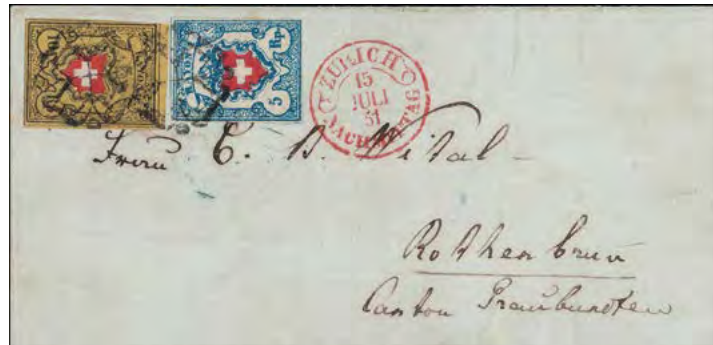 RAYON I
5 Rp.
ZURICH
15
JULI
51
NACHMITTAG
Herrn C. D. Vital
Rothenbrun
Canton Graubündten